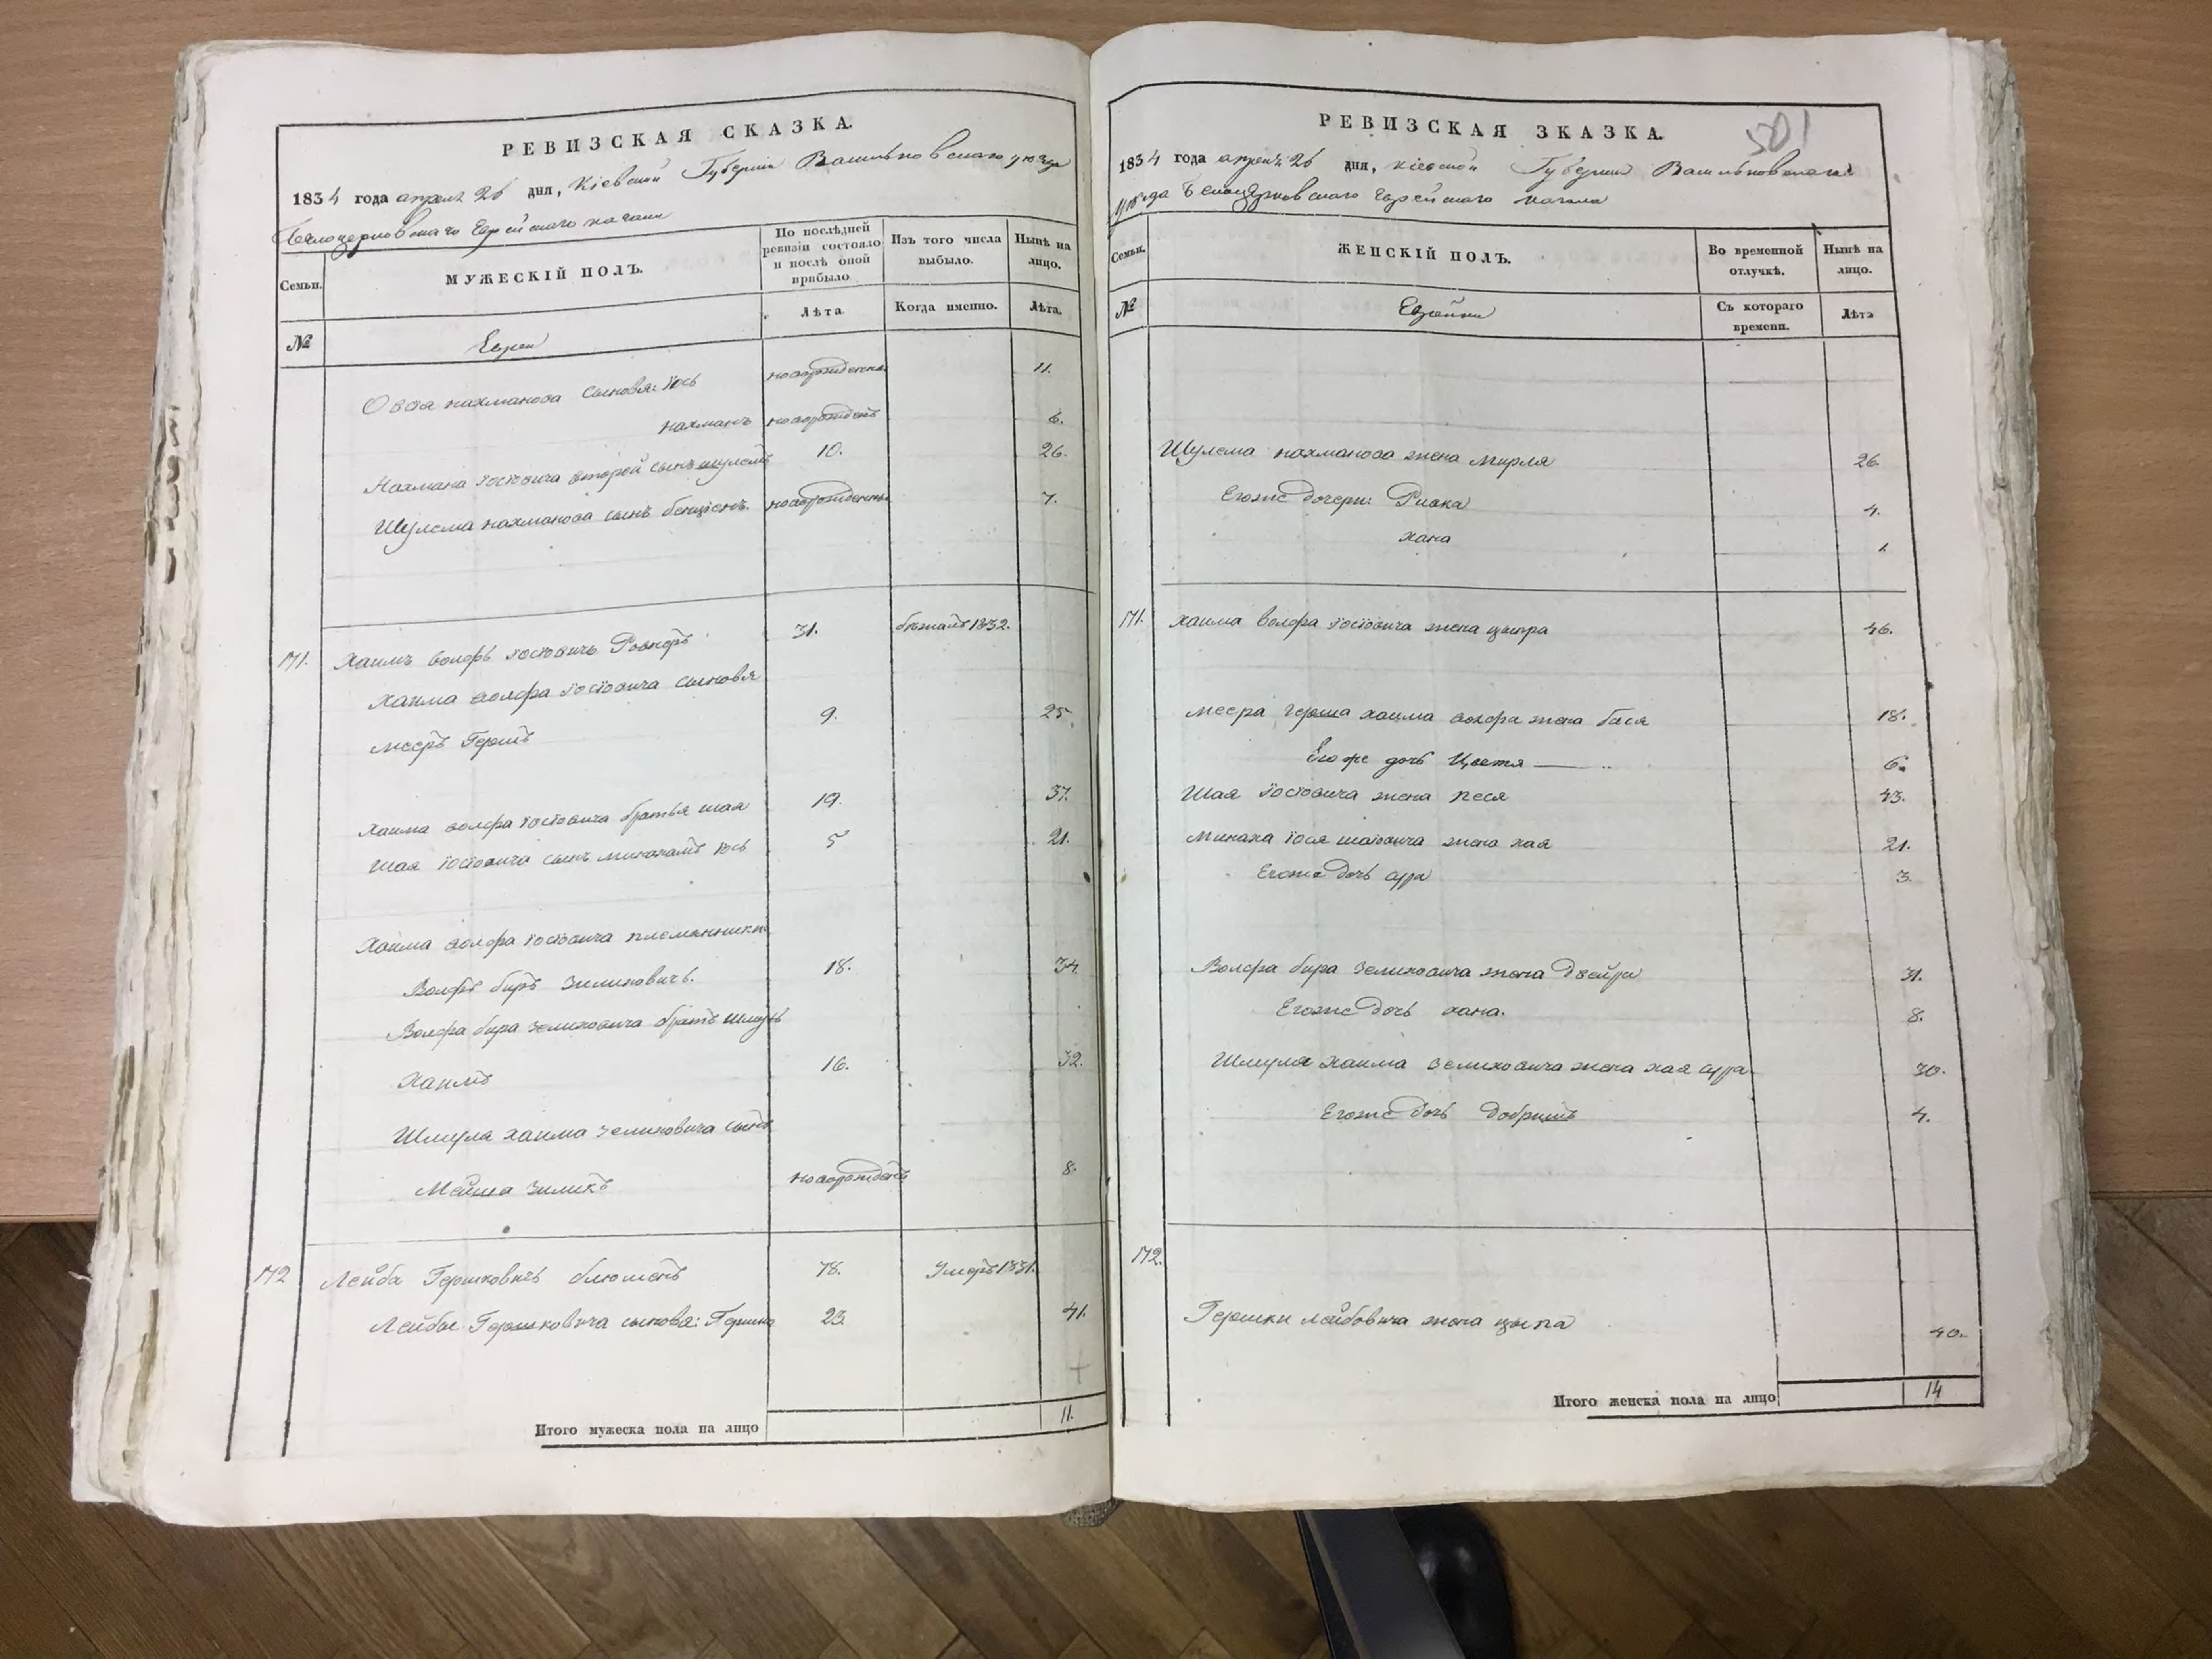 РЕВИЗСКАЯ СКАЗКА.
1834 года апреля 26 дня, Кіевской Губерніи Васильковскаго уезда
Белоцерковскаго Еврейскаго кагала
Семьи.
МУЖЕСКІЙ ПОЛЪ.
По послѣдней ревизіи состояло и послѣ оной прибыло
Изъ того числа выбыло.
Нынѣ на лицо.
Лѣта
Когда именно.
Лѣта.
№
Евреи
Овсея нахманова сыновья: Іось новорожденный 11.
нахманъ новорожденъ 6.
Нахмана Іосіовича второй сынъ шулемъ 10. 26.
Шулема нахманова сынъ бенціонъ. новорожденный 7.
171. Хаимъ волфъ Іосіовичъ 31. бежалъ 1832.
Хаима волфа Іосіовича сыновья
мееръ Гершъ 9. 25.
Хаима волфа Іосіовича братья шая 19. 37.
Шая Іосіовича сынъ минахамъ Іось 5 21.
Хаима волфа Іосіовича племянники
Волфъ биръ Зилиховичъ. 18. 34.
Волфа бира зелиховича братъ шмуль
Хаимъ 16. 32.
Шмуля хаима зелиховича сынъ
Мейша зиликъ новорожденъ 8.
172 Лейба Гершковичъ 78. Умеръ 1831.
Лейбы Гершковича сыновья: Гершко 23. 41.
Итого мужеска пола на лицо 11.
501
РЕВИЗСКАЯ ЗКАЗКА.
1834 года апреля 26 дня, Кіевской Губерніи Васильковскаго
уезда Белоцерковскаго Еврейскаго кагала
Семьи.
ЖЕНСКІЙ ПОЛЪ.
Во временной отлучкѣ.
Нынѣ на лицо.
№
Еврейки
Съ котораго времени.
Лѣта
Шулема нахманова жена мирля 26.
Егоже дочери: Ривка 4.
хана 1.
171. Хаима волфа Іосіовича жена ципра 46.
меера герша хаима волфа жена бася 18.
Его же дочь Цветя — 6.
Шая Іосіовича жена песя 43.
Минаха Іося шаіовича жена хая 21.
Егоже дочь сура 3.
Волфа бира зелиховича жена двейра 31.
Егоже дочь хана. 8.
Шмуля хаима зелиховича жена хая сура 30.
Егоже дочь добришъ 4.
172.
Гершки лейбовича жена цыпа 40.
Итого женска пола на лицо 14